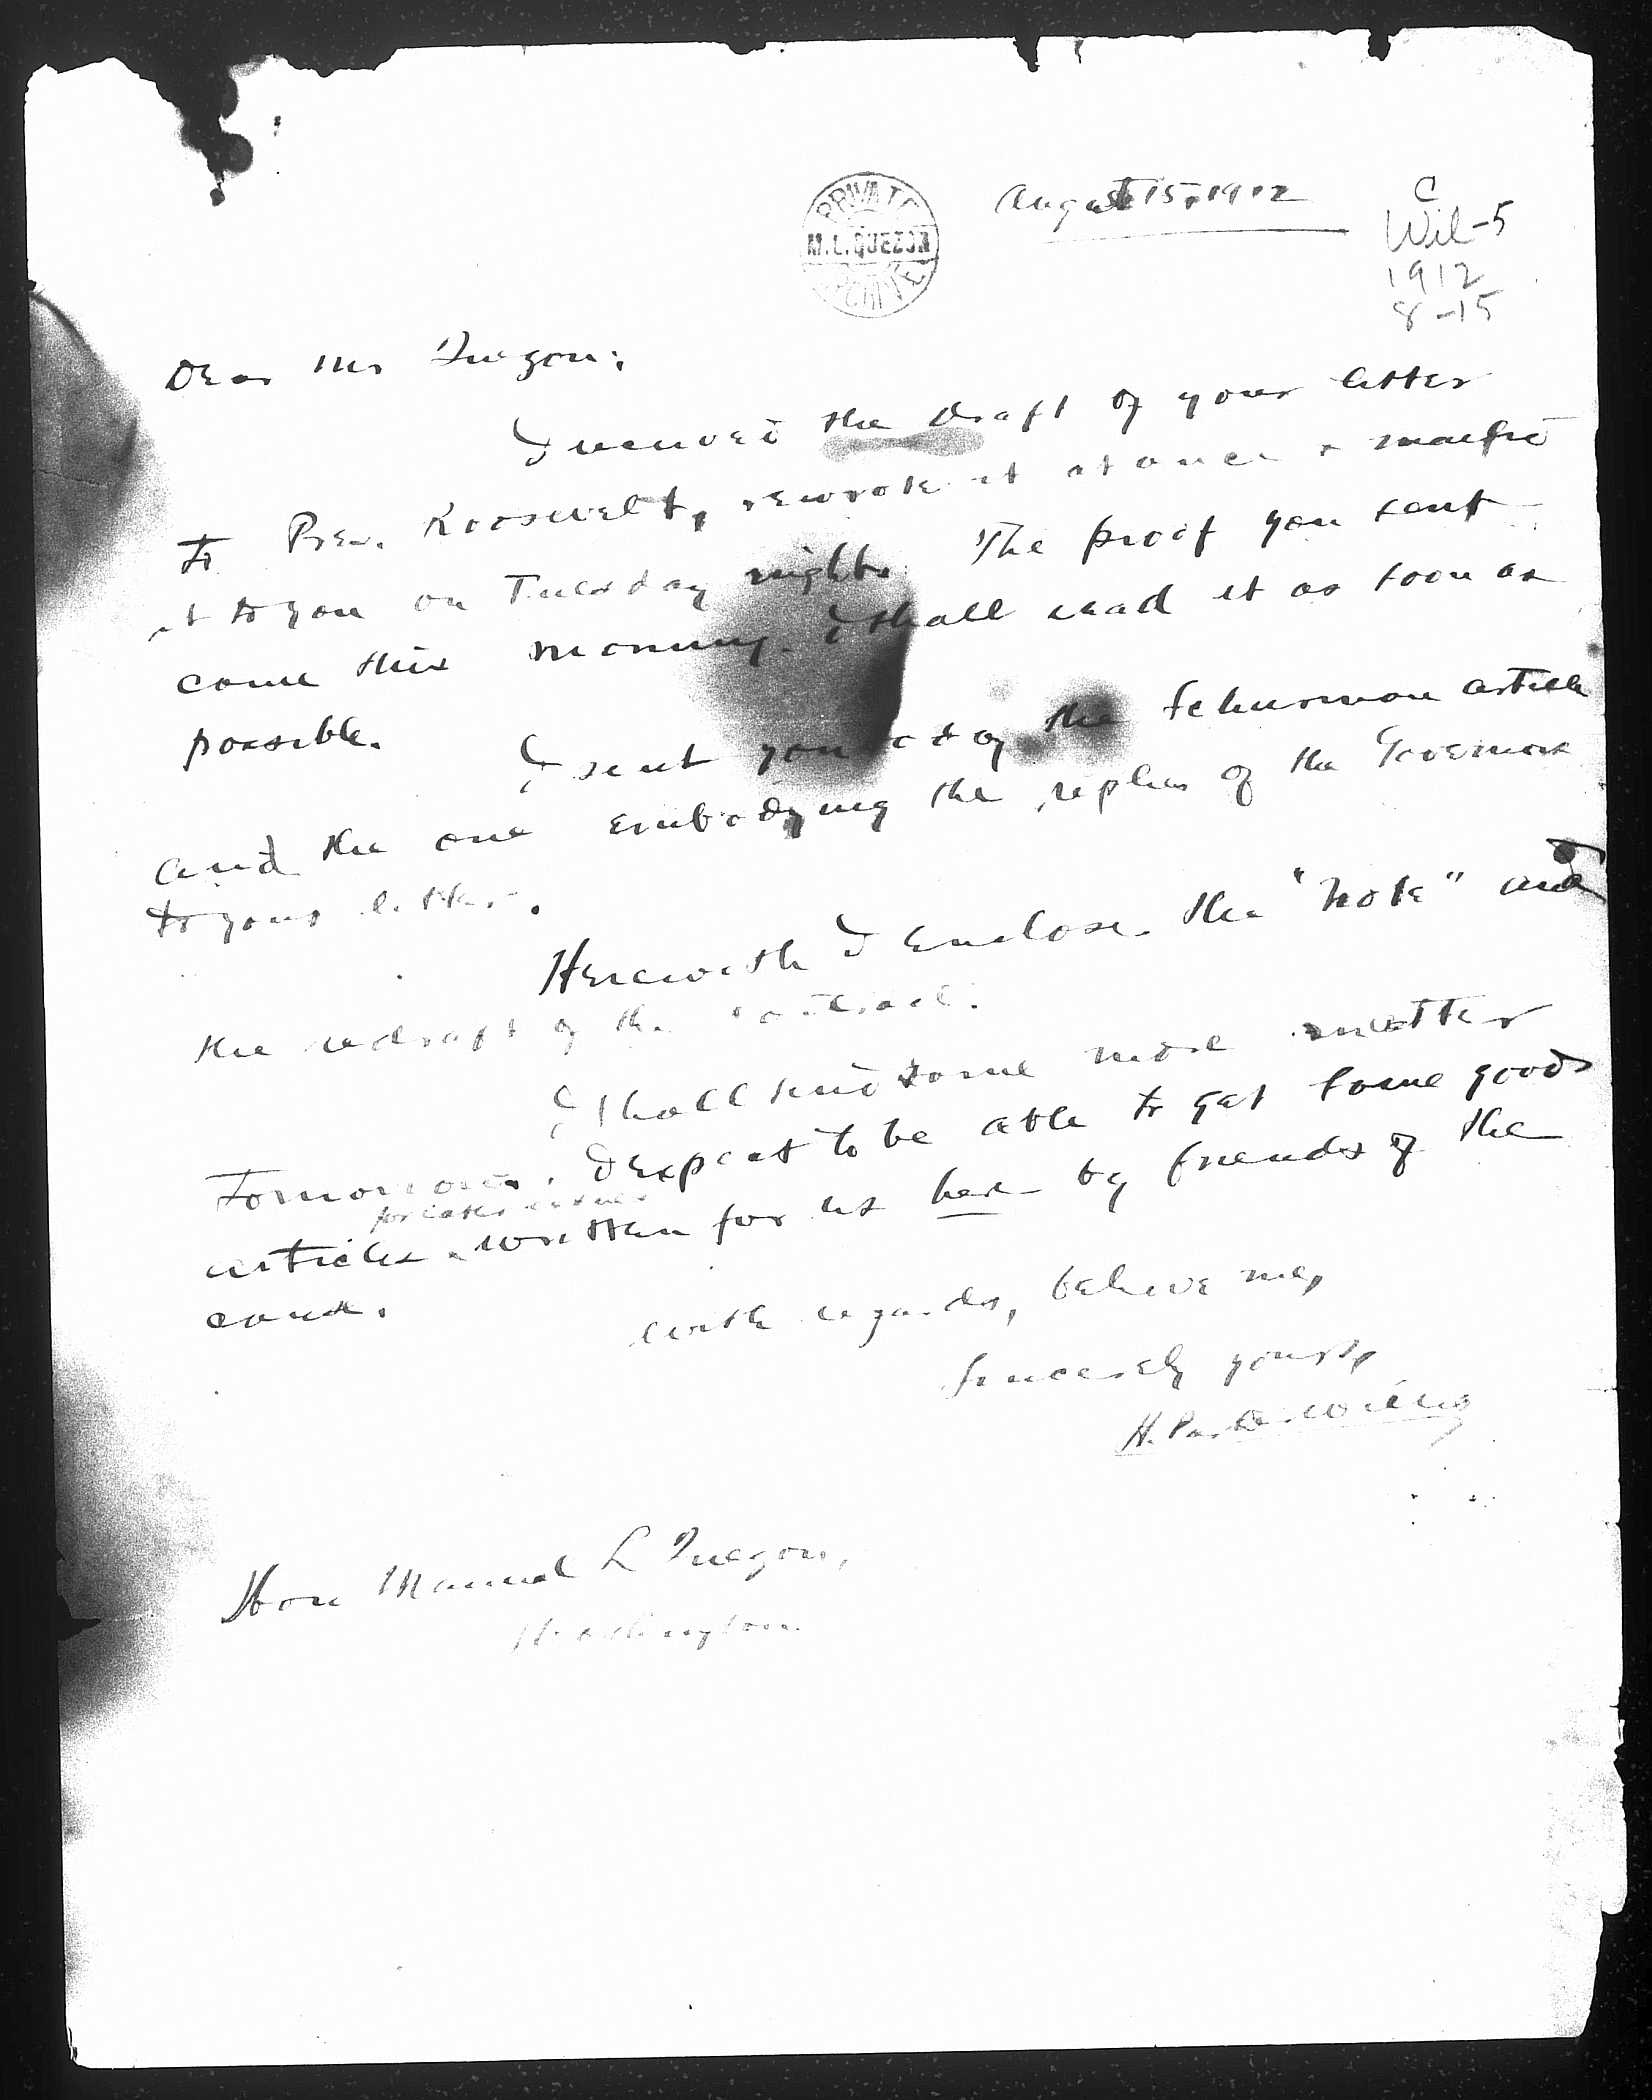 August 15, 1912
PRIVATE
M. L. QUEZON
ARCHIVE
C
Wil-5
1912
8-15
Dear Mr Quezon:
I received the draft of your letter
to Pres. Roosevelt, rewrote it at once & mailed
it to you on Tuesday night. The proof you sent
came this morning. I shall read it as soon as
possible.
I sent you today the Schurman article
and the one embodying the replies of the Governors
to your letter.
Herewith I enclose the "note" and
the redraft of the contract.
I shall send some more matter
Tomorrow. I expect to be able to get some good
for later issues
articles written for us here by friends of the
cause.
With regards, believe me,
Sincerely yours,
H. Parker Willis
Hon Manuel L Quezon,
Washington.